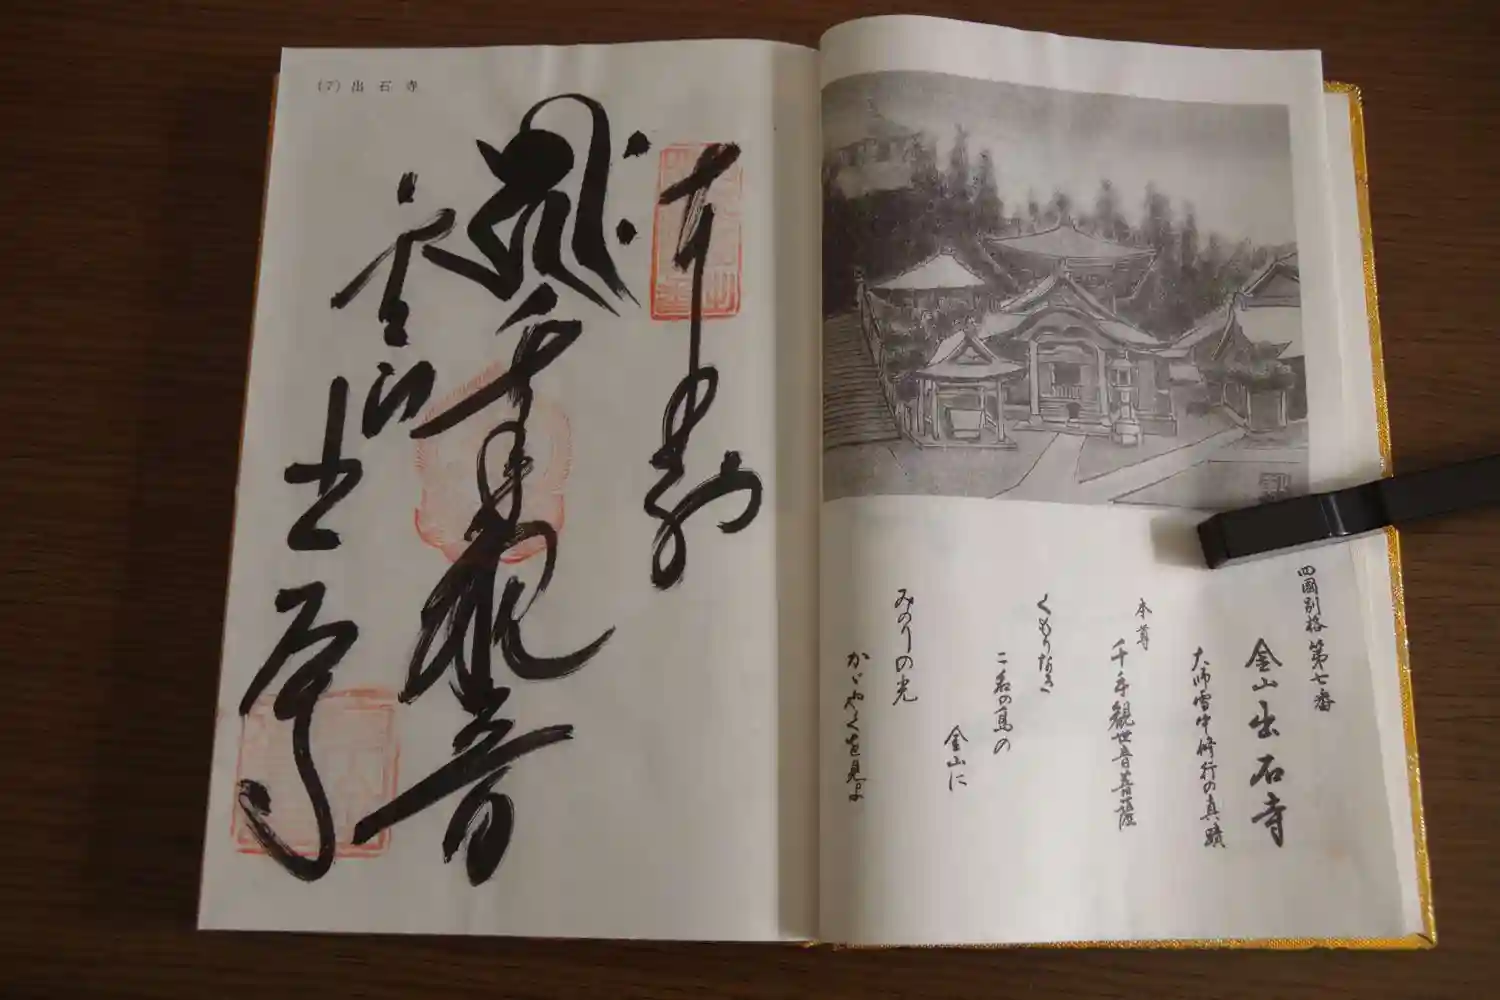 四國別格第七番
金山出石寺
大師雪中修行の真蹟
本尊 千手観世音菩薩
くもりなき
二名の島の
金山に
みのりの光
かゞやくを見よ
(7) 出石寺
奉納
千手観音
金山出石寺